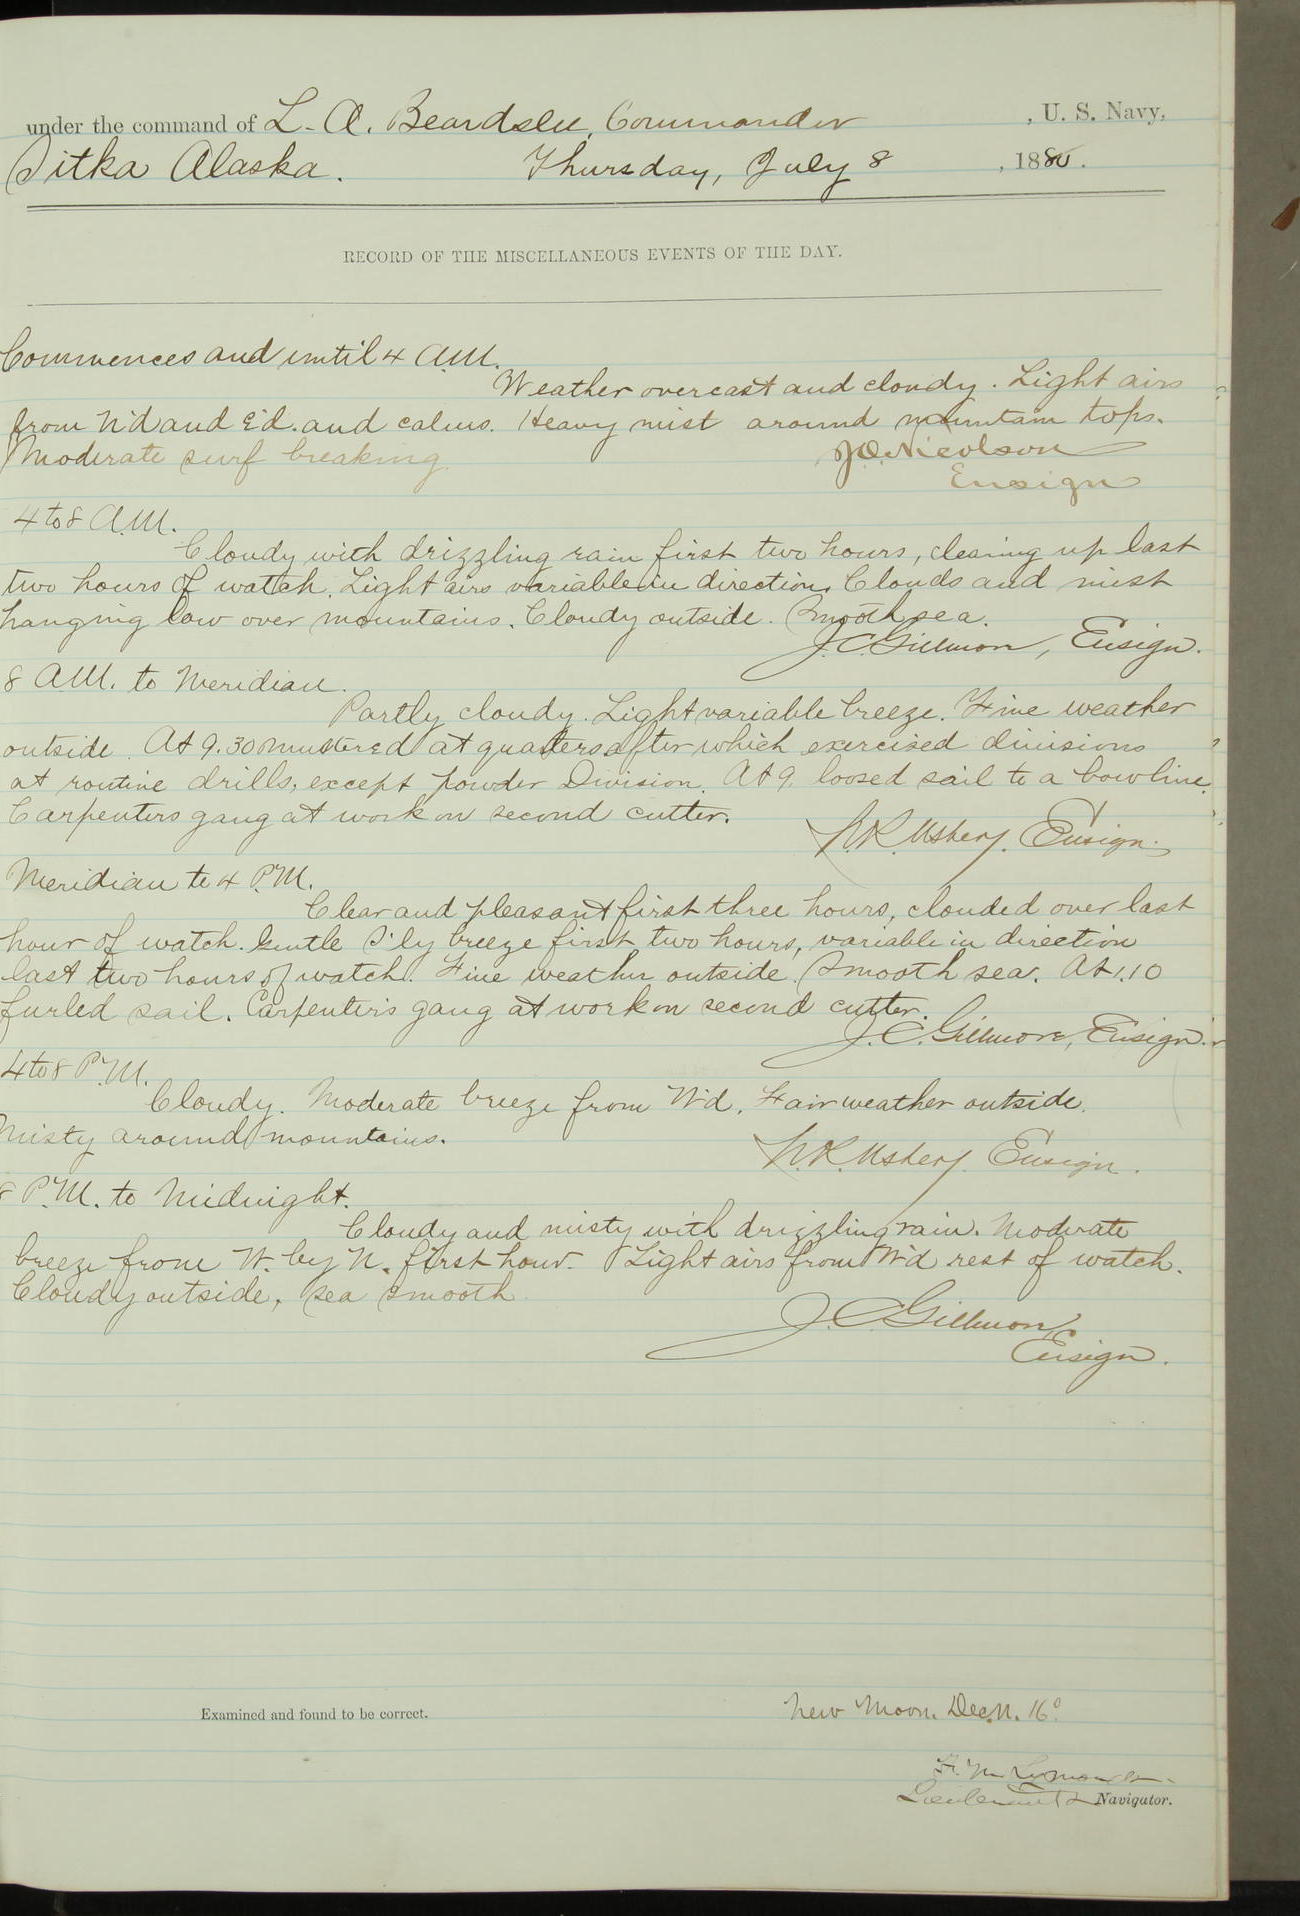 under the command of L. A. Beardslee, Commander, U. S. Navy,
Sitka Alaska. Thursday, July 8, 1880.
RECORD OF THE MISCELLANEOUS EVENTS OF THE DAY.
Commences and until 4 A.M.
Weather overcast and cloudy. Light airs
from N'd and E'd. and calms. Heavy mist around mountain tops.
Moderate surf breaking.
J.O. Nicolson
Ensign
4 to 8 A.M.
Cloudy with drizzling rain first two hours, clearing up last
two hours of watch. Light airs variable in direction. Clouds and mist
hanging low over mountains. Cloudy outside. Smooth sea.
J. C. Gillmore, Ensign.
8 A.M. to Meridian.
Partly cloudy. Light variable breeze. Fine weather
outside. At 9.30 mustered at quarters after which exercised divisions
at routine drills, except powder Division. At 9. loosed sail to a bowline.
Carpenters gang at work on second cutter.
N.R. Usher, Ensign.
Meridian to 4 P.M.
Clear and pleasant first three hours, clouded over last
hour of watch. Gentle S'ly breeze first two hours, variable in direction
last two hours of watch. Fine weather outside. Smooth sea. At 1.10
furled sail. Carpenter's gang at work on second cutter.
J. C. Gillmore, Ensign.
4 to 8 P.M.
Cloudy. Moderate breeze from W'd. Fair weather outside.
Misty around mountains.
N.R. Usher, Ensign.
8 P.M. to Midnight.
Cloudy and misty with drizzling rain. Moderate
breeze from W. by N. first hour. Light airs from W'd rest of watch.
Cloudy outside, sea smooth.
J. C. Gillmore
Ensign.
Examined and found to be correct.
New Moon. Dec. N. 16°
Lieutenant & Navigator.